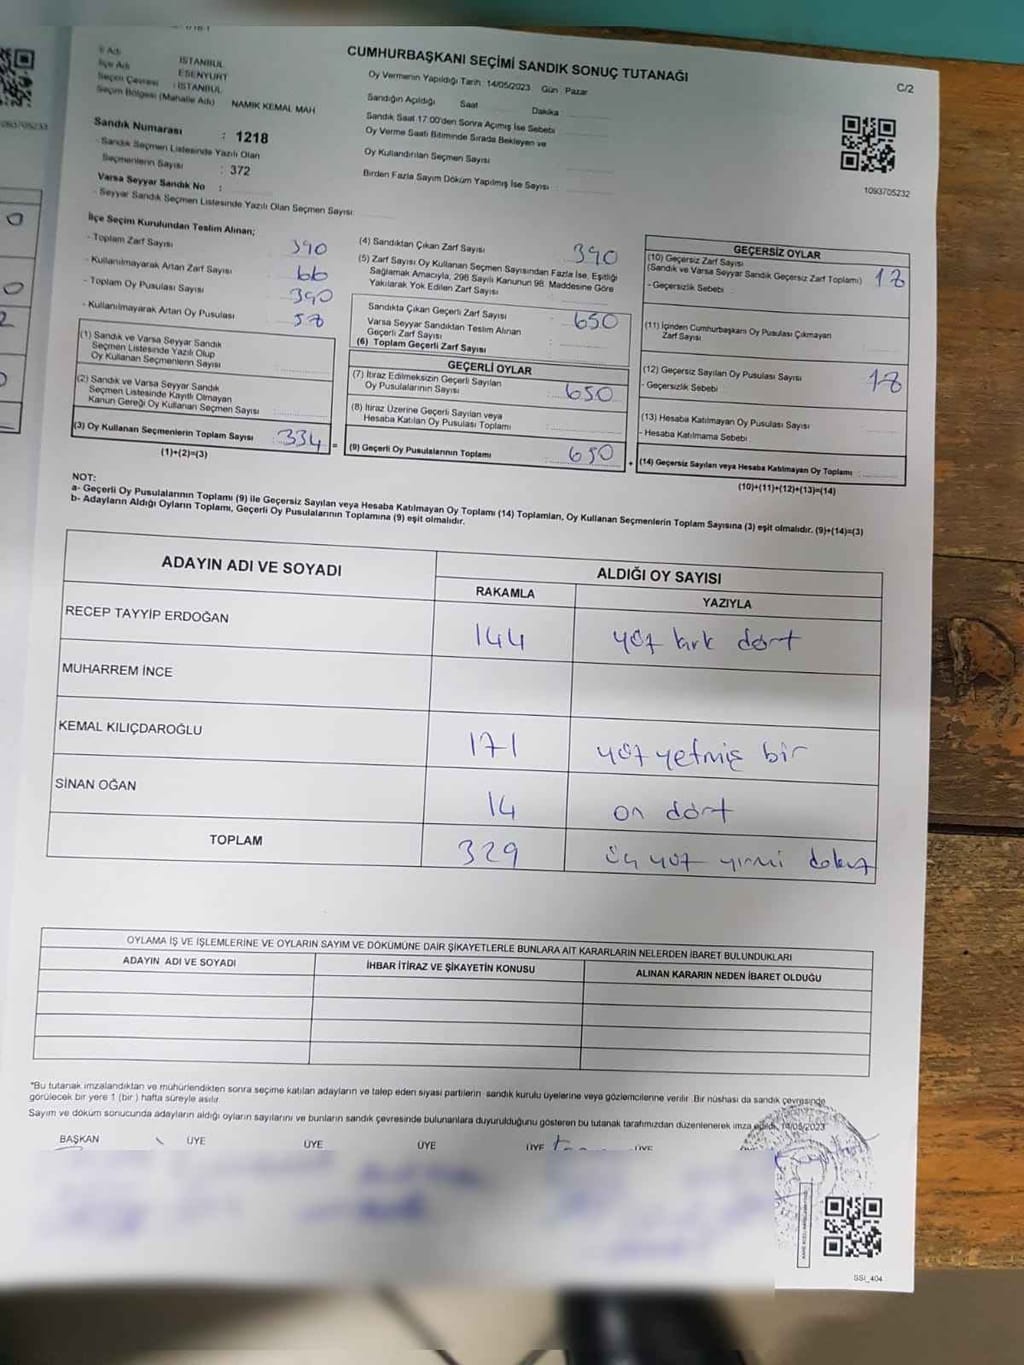 CUMHURBAŞKANI SEÇİMİ SANDIK SONUÇ TUTANAĞI
C/2
İl Adı : İSTANBUL
İlçe Adı : ESENYURT
Seçim Çevresi : İSTANBUL
Seçim Bölgesi (Mahalle Adı) NAMIK KEMAL MAH
Sandık Numarası : 1218
- Sandık Seçmen Listesinde Yazılı Olan
Seçmenlerin Sayısı : 372
Varsa Seyyar Sandık No :
- Seyyar Sandık Seçmen Listesinde Yazılı Olan Seçmen Sayısı:
Oy Vermenin Yapıldığı Tarih : 14/05/2023 Gün : Pazar
Sandığın Açıldığı Saat Dakika
Sandık Saat 17:00'den Sonra Açılmış İse Sebebi
Oy Verme Saati Bitiminde Sırada Bekleyen ve
Oy Kullandırılan Seçmen Sayısı
Birden Fazla Sayım Döküm Yapılmış İse Sayısı :
1093705232
1093705233
İlçe Seçim Kurulundan Teslim Alınan;
- Toplam Zarf Sayısı 390
- Kullanılmayarak Artan Zarf Sayısı 66
- Toplam Oy Pusulası Sayısı 390
- Kullanılmayarak Artan Oy Pusulası
(1) Sandık ve Varsa Seyyar Sandık
Seçmen Listesinde Yazılı Olup
Oy Kullanan Seçmenlerin Sayısı
(2) Sandık ve Varsa Seyyar Sandık
Seçmen Listesinde Kayıtlı Olmayan
Kanun Gereği Oy Kullanan Seçmen Sayısı
(3) Oy Kullanan Seçmenlerin Toplam Sayısı : 334 =
(1)+(2)=(3)
(4) Sandıktan Çıkan Zarf Sayısı 390
(5) Zarf Sayısı Oy Kullanan Seçmen Sayısından Fazla İse, Eşitliği
Sağlamak Amacıyla, 298 Sayılı Kanunun 98. Maddesine Göre
Yakılarak Yok Edilen Zarf Sayısı
Sandıkta Çıkan Geçerli Zarf Sayısı : 650
Varsa Seyyar Sandıktan Teslim Alınan
Geçerli Zarf Sayısı
(6) Toplam Geçerli Zarf Sayısı
GEÇERLİ OYLAR
(7) İtiraz Edilmeksizin Geçerli Sayılan
Oy Pusulalarının Sayısı : 650
(8) İtiraz Üzerine Geçerli Sayılan veya
Hesaba Katılan Oy Pusulası Toplamı
(9) Geçerli Oy Pusulalarının Toplamı : 650 +
GEÇERSİZ OYLAR
(10) Geçersiz Zarf Sayısı
(Sandık ve Varsa Seyyar Sandık Geçersiz Zarf Toplamı) 18
- Geçersizlik Sebebi
(11) İçinden Cumhurbaşkanı Oy Pusulası Çıkmayan
Zarf Sayısı
(12) Geçersiz Sayılan Oy Pusulası Sayısı 18
- Geçersizlik Sebebi
(13) Hesaba Katılmayan Oy Pusulası Sayısı
- Hesaba Katılmama Sebebi
(14) Geçersiz Sayılan veya Hesaba Katılmayan Oy Toplamı :
(10)+(11)+(12)+(13)=(14)
NOT:
a- Geçerli Oy Pusulalarının Toplamı (9) ile Geçersiz Sayılan veya Hesaba Katılmayan Oy Toplamı (14) Toplamları, Oy Kullanan Seçmenlerin Toplam Sayısına (3) eşit olmalıdır. (9)+(14)=(3)
b- Adayların Aldığı Oyların Toplamı, Geçerli Oy Pusulalarının Toplamına (9) eşit olmalıdır.
ADAYIN ADI VE SOYADI
ALDIĞI OY SAYISI
RAKAMLA YAZIYLA
RECEP TAYYİP ERDOĞAN 144 yüz kırk dört
MUHARREM İNCE
KEMAL KILIÇDAROĞLU 171 yüz yetmiş bir
SİNAN OĞAN 14 on dört
TOPLAM 329 üç yüz yirmi dokuz
OYLAMA İŞ VE İŞLEMLERİNE VE OYLARIN SAYIM VE DÖKÜMÜNE DAİR ŞİKAYETLERLE BUNLARA AİT KARARLARIN NELERDEN İBARET BULUNDUKLARI
ADAYIN ADI VE SOYADI İHBAR İTİRAZ VE ŞİKAYETİN KONUSU ALINAN KARARIN NEDEN İBARET OLDUĞU
*Bu tutanak imzalandıktan ve mühürlendikten sonra seçime katılan adayların ve talep eden siyasi partilerin sandık kurulu üyelerine veya gözlemcilerine verilir. Bir nüshası da sandık çevresinde
görülecek bir yere 1 (bir) hafta süreyle asılır.
Sayım ve döküm sonucunda adayların aldığı oyların sayılarını ve bunların sandık çevresinde bulunanlara duyurulduğunu gösteren bu tutanak tarafımızdan düzenlenerek imza edildi. 14/05/2023
BAŞKAN ÜYE ÜYE ÜYE ÜYE ÜYE
SSİ_404